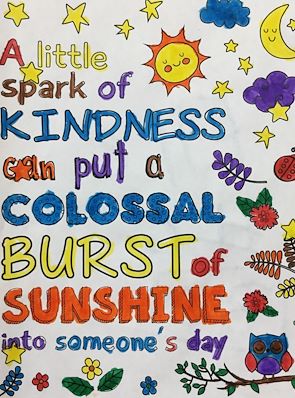 A little
spark of
KINDNESS
can put a
COLOSSAL
BURST of
SUNSHINE
into someone's day